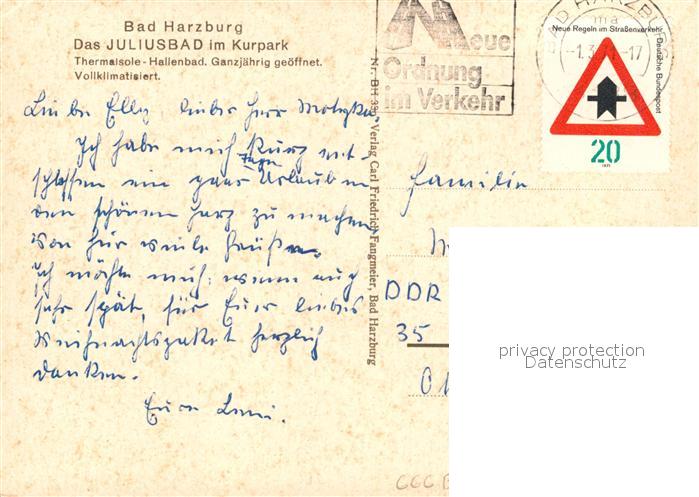 Bad Harzburg
Das JULIUSBAD im Kurpark
Thermalsole-Hallenbad. Ganzjährig geöffnet.
Vollklimatisiert.
Liebe Elly, lieber Herr
Ich habe mich kurz ent-
schlossen ein paar Tage Urlaub in
den schönen Harz zu machen
Von hier viele Grüße.
Ich möchte mich, wenn auch
sehr spät, für Euer liebes
Weihnachtspaket herzlich
danken.
Eure Leni.
Nr. BH Verlag Carl Friedrich Fangmeier, Bad Harzburg
Neue
Ordnung
im Verkehr
BAD HARZBURG
ma
-1.3.71-17
Neue Regeln im Straßenverkehr
Deutsche Bundespost
20
1971
Familie
DDR
35
privacy protection
Datenschutz